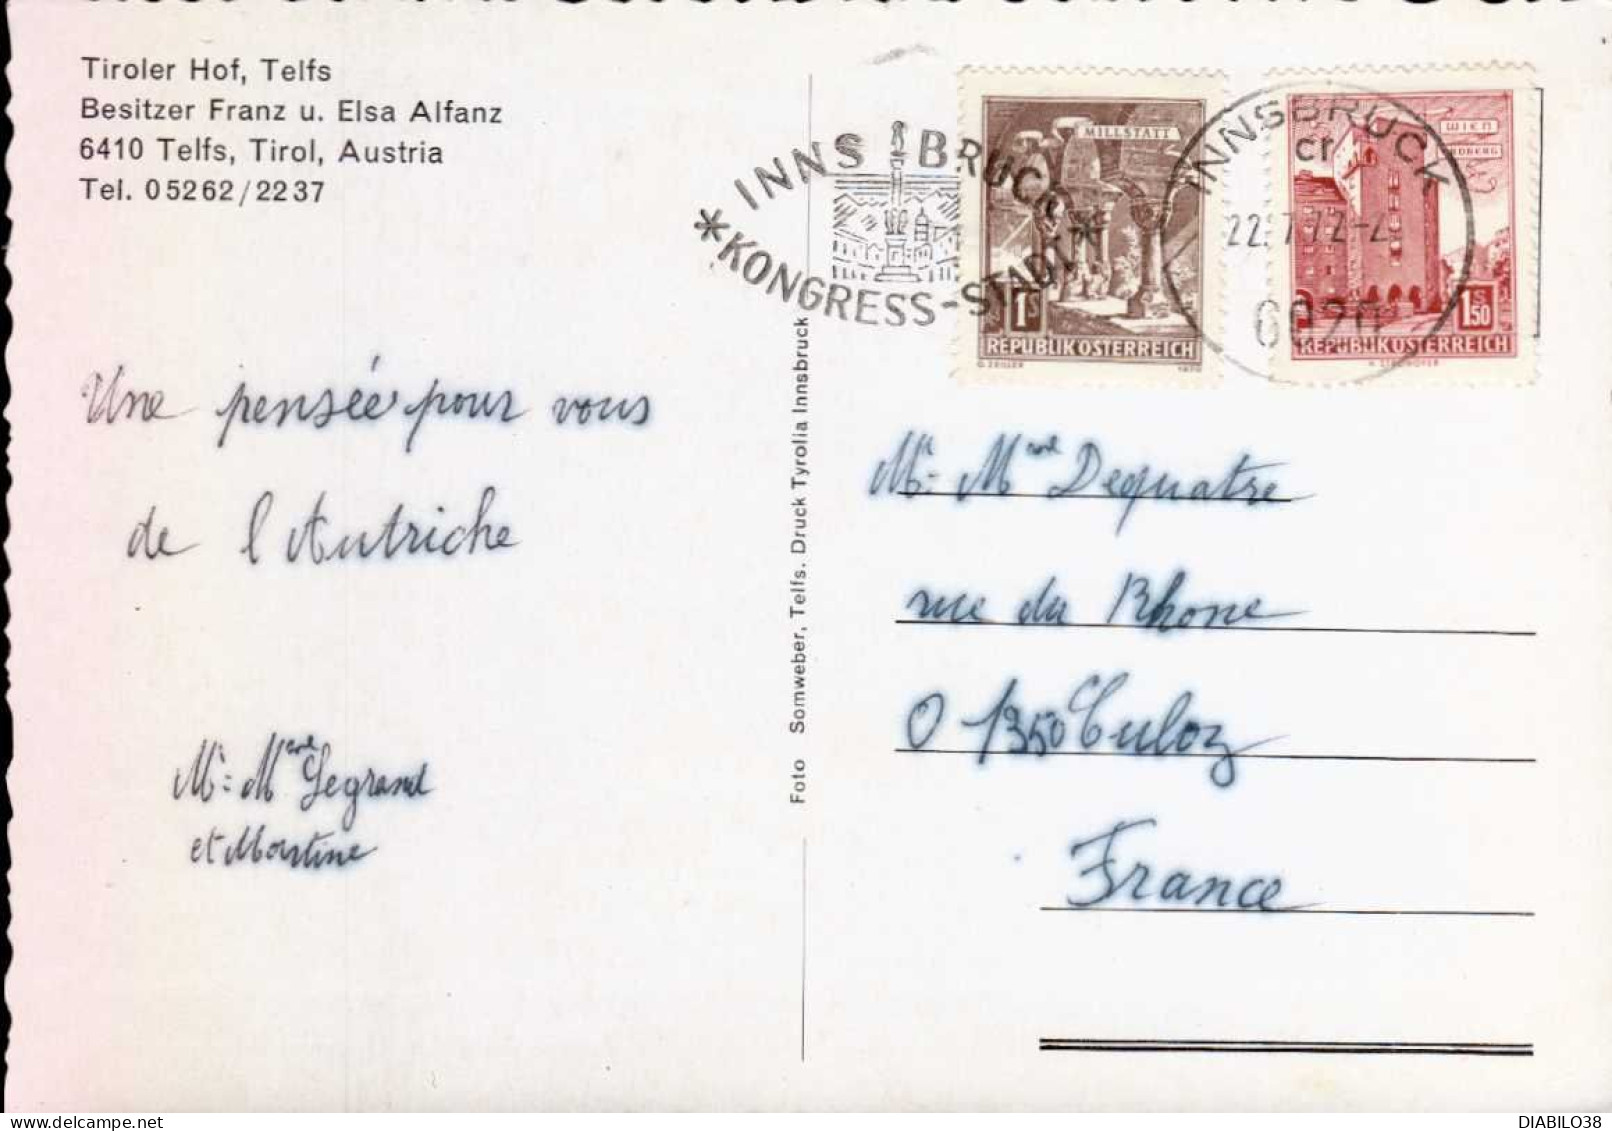 Tiroler Hof, Telfs
Besitzer Franz u. Elsa Alfanz
6410 Telfs, Tirol, Austria
Tel. 05262/2237
INNSBRUCK
*KONGRESS-STADT*
MILLSTATT
1 S
REPUBLIK ÖSTERREICH
G. ZEILLER 1970
INNSBRUCK
cr
22.7.72-
6020
WIEN
ERDBERG
1.50 S
REPUBLIK ÖSTERREICH
Une pensée pour vous
de l'Autriche
Mr= Mme Legrand
et Martine
Foto Somweber, Telfs. Druck Tyrolia Innsbruck
Mr= Mme Dequatre
rue du Rhone
01350 Culoz
France
DIABILO38